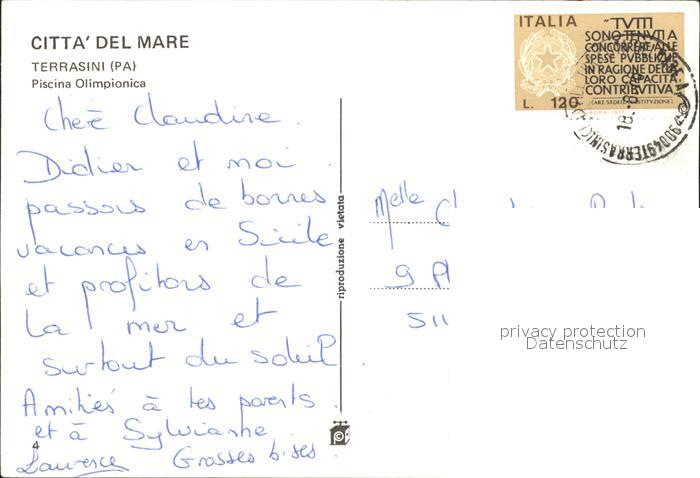 CITTA' DEL MARE
TERRASINI (PA)
Piscina Olimpionica
Cherè Claudine.
Didier et moi
passons de bonnes
vacances en Sicile
et profitons de
la mer et
surtout du soleil.
Amitiés à tes parents.
et à Sylvianne
4
Laurence Grosses bises.
riproduzione vietata
ITALIA
"TUTTI
SONO TENUTI A
CONCORRERE ALLE
SPESE PUBBLICHE
IN RAGIONE DELLA
LORO CAPACITÀ
CONTRIBUTIVA"
(ART. 53 DELLA COSTITUZIONE)
L. 120
90049 TERRASINI
18.8
Melle
9 Pl
511
privacy protection
Datenschutz